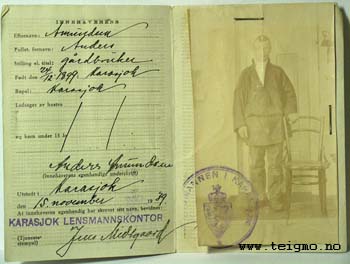 INNEHAVERENS
Efternavn: Amundsen
Fullst. fornavn: Anders
Stilling el. titel: gårdbruker
Født den 24/12 1899 i Karasjok
Bopel: Karasjok
Ledsaget av hustru
og barn under 15 år
Anders Amundsen
(innehaverens egenhendige underskrift)
Utstedt i Karasjok
den 15. november 1939
At innehaveren egenhendig har skrevet sitt navn, bevidnes
KARASJOK LENSMANNSKONTOR
(Tjeneste-
stempel)
Jens
LENSMANNEN I KARASJOK
www.teigmo.no